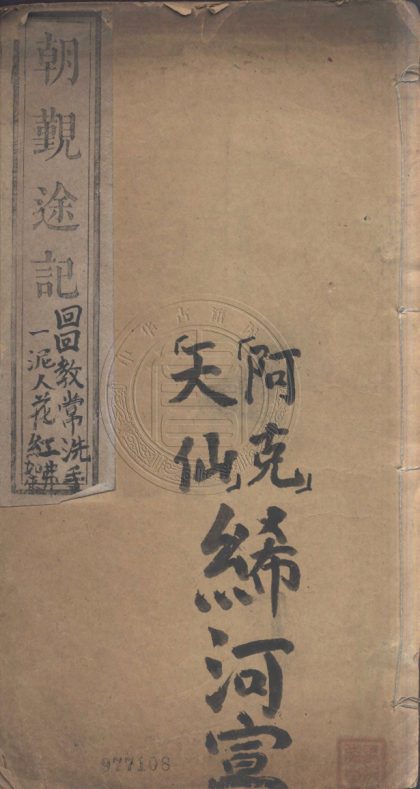 朝覲途記
回回教常洗手
一泥人花紅
「阿克」
「天仙」
絺河宣
977108